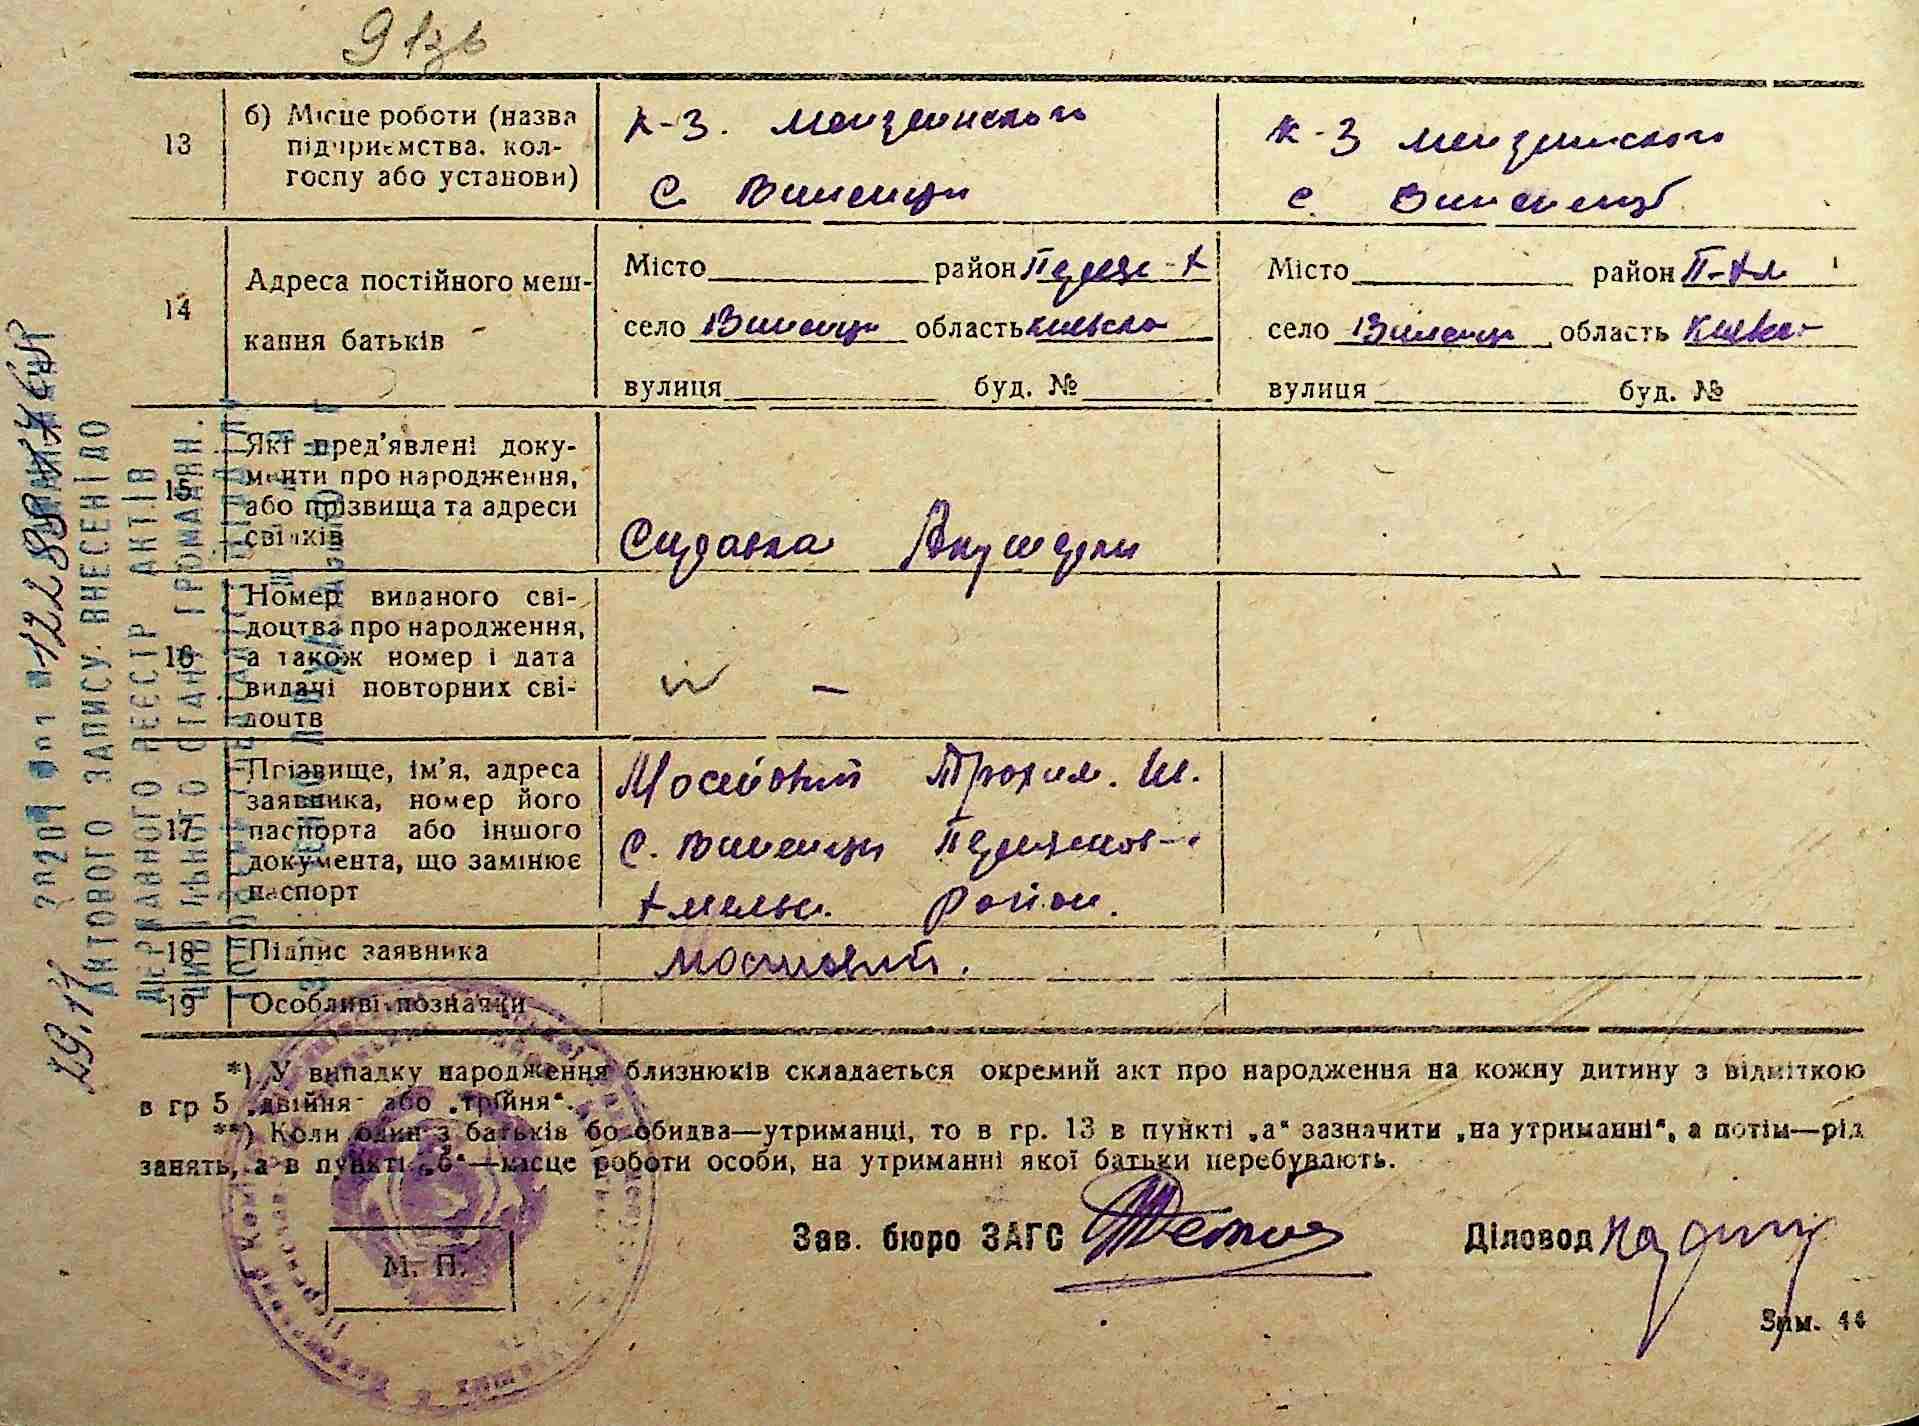 9 їзв
13
б) Місце роботи (назва
підприємства, кол-
госпу або установи)
К-З. Менжинского
с. Виненци
К-З Менжинского
с.
14
Адреса постійного меш-
кання батьків
Місто район Переяс-Х
село Виненци область Київська
вулиця буд. №
Місто район П-Хм
село Виненци область Київськ
вулиця буд. №
15
Які пред'явлені доку-
менти про народження,
або прізвища та адреси
свідків
Справка Акушерки
16
Номер виданого сві-
доцтва про народження,
а також номер і дата
видачі повторних сві-
доцтв
–
17
Прізвище, ім'я, адреса
заявника, номер його
паспорта або іншого
документа, що замінює
паспорт
Мосійовий Трохим.
с. Виненци Переяснов-
Хмельн. Район.
18
Підпис заявника
19
Особливі позначки
*) У випадку народження близнюків складається окремий акт про народження на кожну дитину з відміткою
в гр 5 „двійня" або „трійня".
**) Коли один з батьків бо обидва—утриманці, то в гр. 13 в пункті „а" зазначити „на утриманні", а потім—рід
занять, а в пункті „б"—місце роботи особи, на утриманні якої батьки перебувають.
М. П.
Зав. бюро ЗАГС
Діловод
Зам. 44
АКТОВОГО ЗАПИСУ ВНЕСЕНІ ДО
ДЕРЖАВНОГО РЕЄСТР АКТІВ
ЦИВІЛЬНОГО СТАНУ ГРОМАДЯН.